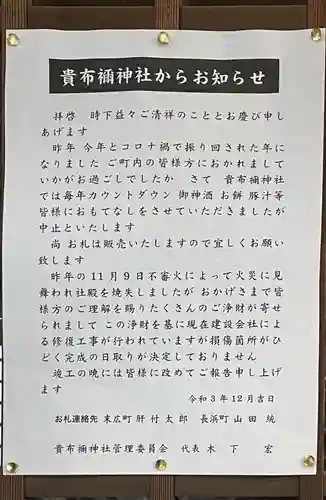 貴布禰神社からお知らせ
拝啓　時下益々ご清祥のこととお慶び申し
あげます
昨年 今年とコロナ禍で振り回された年に
なりました ご町内の皆様方におかれまして
いかがお過ごしでしたか　さて　貴布禰神社
では毎年カウントダウン 御神酒 お餅 豚汁等
皆様におもてなしをさせていただきましたが
中止といたします
尚 お札は販売いたしますので宜しくお願い
致します
昨年の11月9日不審火によって火災に見
舞われ社殿を焼失しましたが おかげさまで皆
様方のご理解を賜りたくさんのご浄財が寄せ
られまして この浄財を基に現在建設会社によ
る修復工事が行われていますが損傷箇所がひ
どく完成の日取りが決定しておりません
竣工の暁には皆様に改めてご報告申し上げ
ます
令和3年12月吉日
お札連絡先 末広町 肝付太郎　長浜町 山田統
貴布禰神社管理委員会　代表 木下　宏